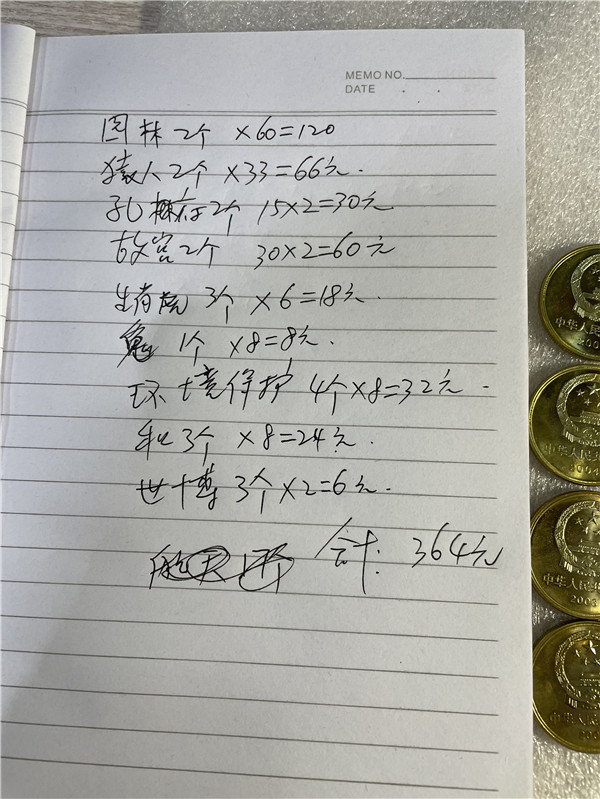 MEMO NO.
DATE
园林2个 ×60=120
猿人2个 ×33=66元.
孔府2个 15×2=30元.
故宫2个 30×2=60元
生肖虎 3个 ×6=18元.
兔 1个 ×8=8元.
环境保护 4个×8=32元.
和3个 ×8=24元.
世博 3个×2=6元.
合计: 364元
中华人民
200
中华人民
2004
中华人民
2003
中华人民
200